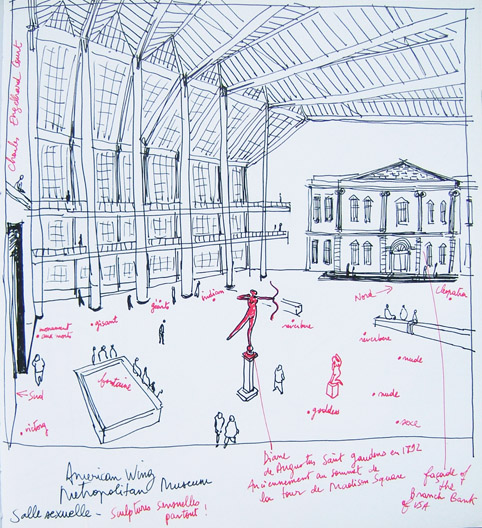 Charles Engelhard Court
indian
géants
gisant
monument
aux morts
Nord →
Cleopatra
rivière
rivière
nude
fontaine
← Sud
goddess
nude
victory
Diane
de Augustus Saint gaudens en 1892
Anciennement au sommet de
la tour de Madison Square
façade of
the
Branch Bank
of USA
American Wing
Metropolitan Museum
Salle sexuelle - sculptures sensuelles
partout !